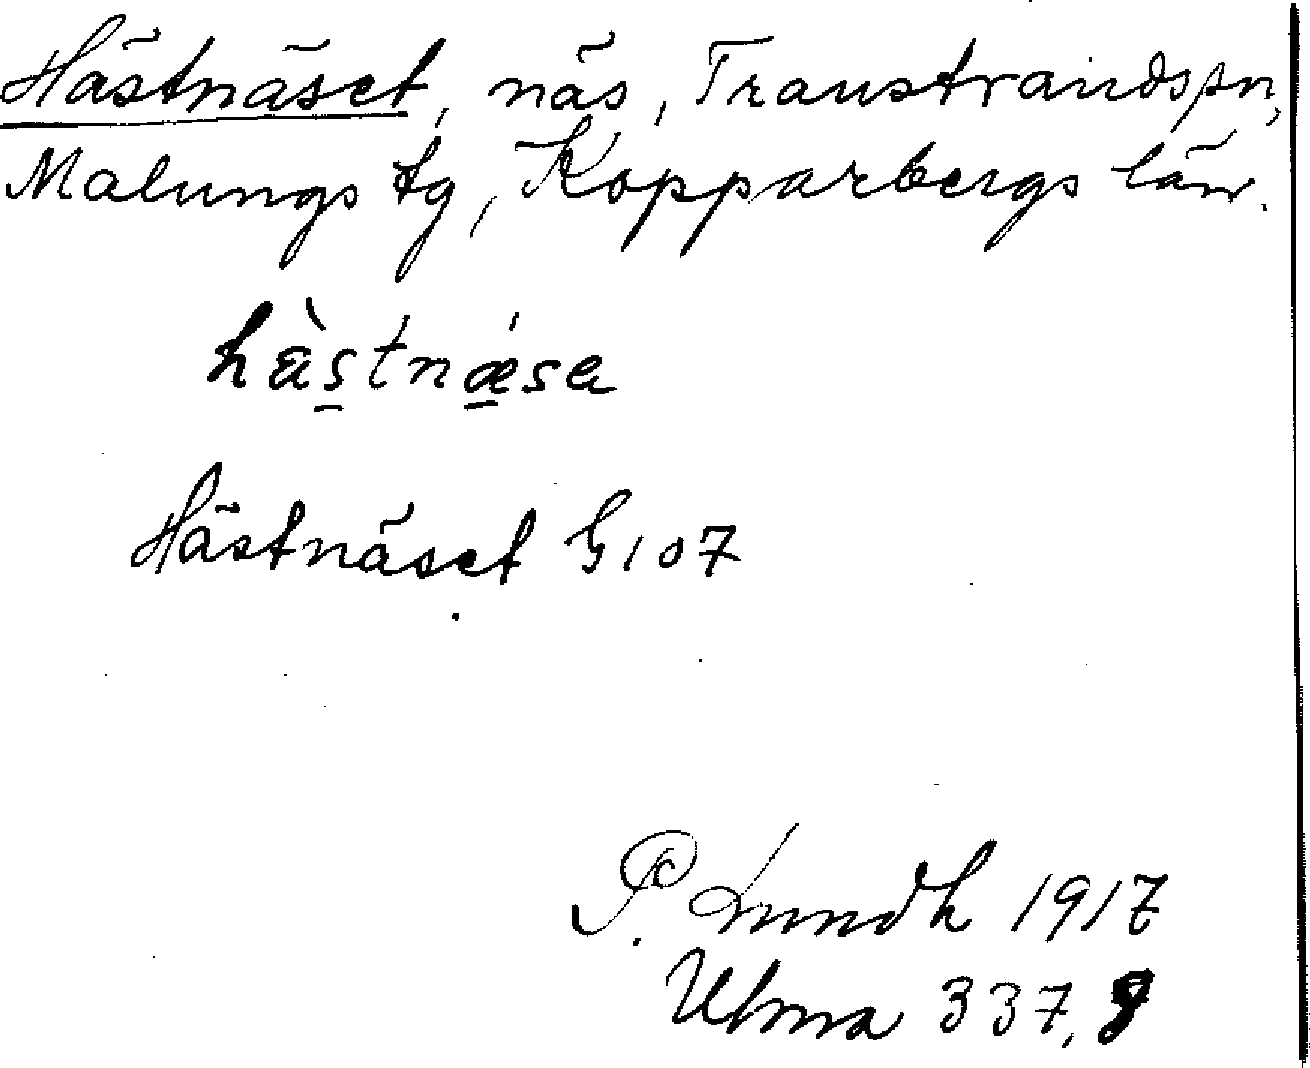 Hästnäset, näs, Transtrands sn,
Malungs tg, Kopparbergs län.
hàstnǽsa
Hästnäset G107
P. Lundh 1917
Ulma 337,8